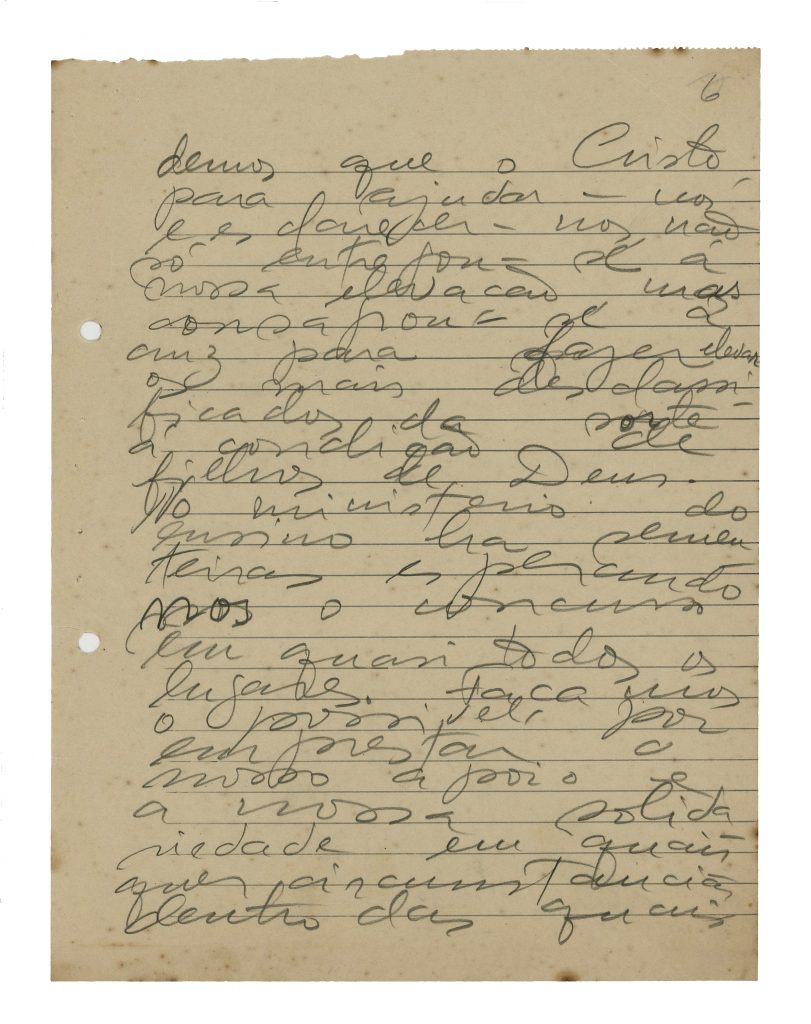 6
demos que o Cristo
para ajudar-nos
e esclarecer-nos não
só entregou-se á
nossa elevação mas
consagrou-se á
cruz para fazer elevar
os mais desclassi
ficados da sorte
á condição de
filhos de Deus.
No ministerio do
ensino ha semen
teiras esperando
nos o concurso
em quasi todos os
lugares. Façamos
o possivel por
emprestar o
nosso apoio e
a nossa solida
riedade em quais
quer circunstancias
dentro das quais